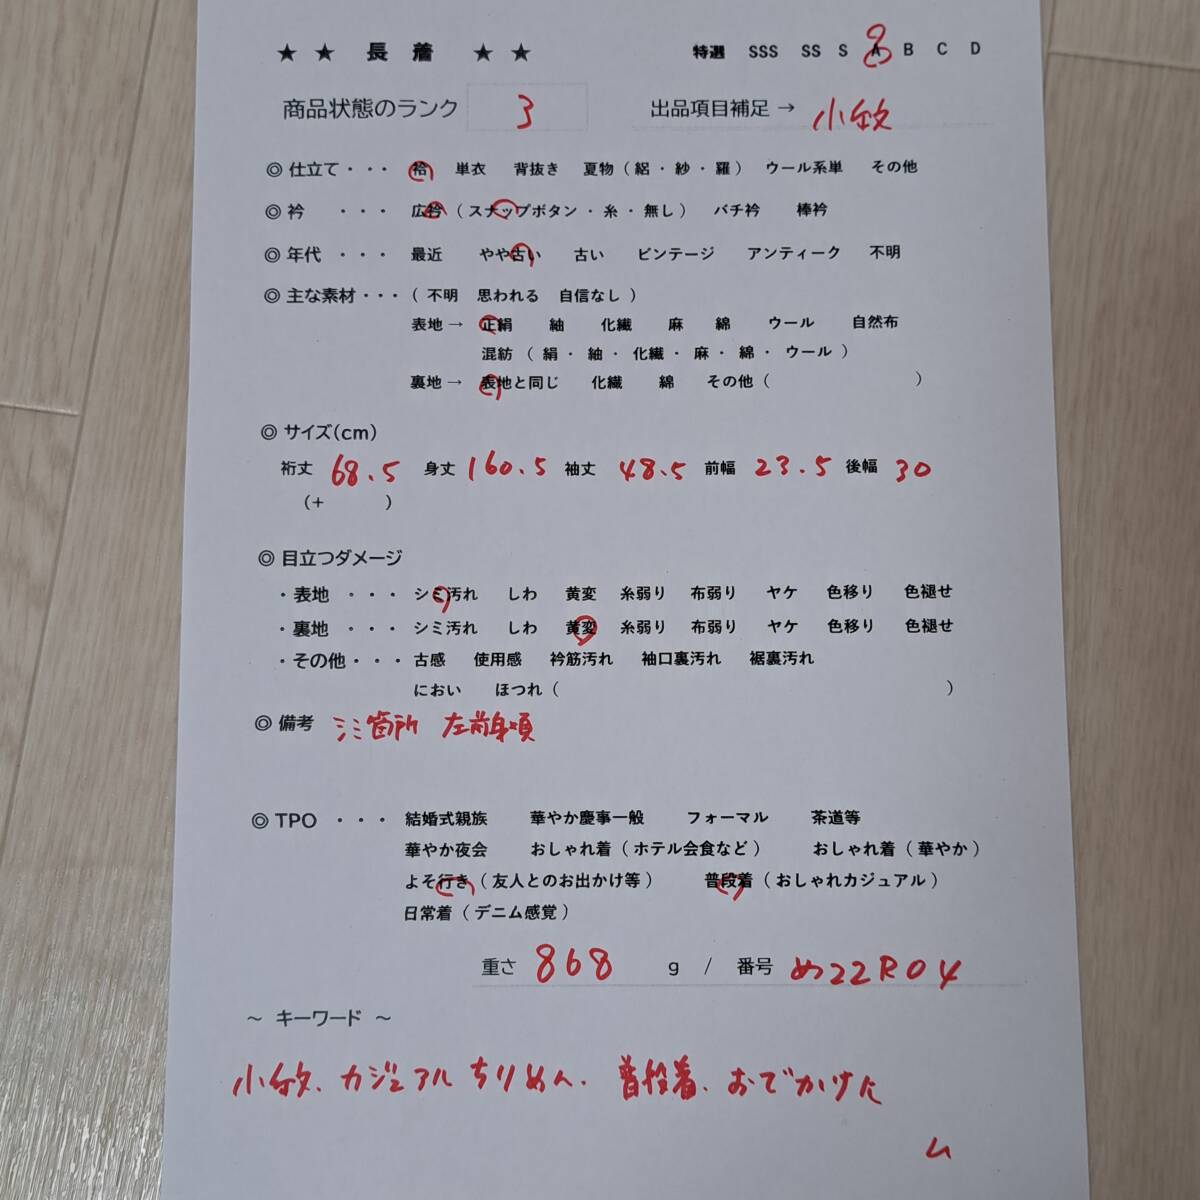 ★ ★ 長 着 ★ ★ 特選 SSS SS S A B C D
商品状態のランク 3 出品項目補足 → 小紋
◎ 仕立て ・・・ 袷 単衣 背抜き 夏物 ( 絽 ・ 紗 ・ 羅 ) ウール系単 その他
◎ 衿 ・・・ 広衿 ( スナップボタン ・ 糸 ・ 無し ) バチ衿 棒衿
◎ 年代 ・・・ 最近 やや古い 古い ビンテージ アンティーク 不明
◎ 主な素材 ・・・ ( 不明 思われる 自信なし )
表地 → 正絹 紬 化繊 麻 綿 ウール 自然布
混紡 ( 絹 ・ 紬 ・ 化繊 ・ 麻 ・ 綿 ・ ウール )
裏地 → 表地と同じ 化繊 綿 その他 ( )
◎ サイズ(cm)
裄丈 68.5 身丈 160.5 袖丈 48.5 前幅 23.5 後幅 30
(+ )
◎ 目立つダメージ
・表地 ・・・ シミ汚れ しわ 黄変 糸弱り 布弱り ヤケ 色移り 色褪せ
・裏地 ・・・ シミ汚れ しわ 黄変 糸弱り 布弱り ヤケ 色移り 色褪せ
・その他 ・・・ 古感 使用感 衿筋汚れ 袖口裏汚れ 裾裏汚れ
におい ほつれ ( )
◎ 備考 シミ箇所 左前身頃
◎ TPO ・・・ 結婚式親族 華やか慶事一般 フォーマル 茶道等
華やか夜会 おしゃれ着 ( ホテル会食など ) おしゃれ着 ( 華やか )
よそ行き ( 友人とのお出かけ等 ) 普段着 ( おしゃれカジュアル )
日常着 ( デニム感覚 )
重さ 868 g / 番号 め22R04
~ キーワード ~
小紋、カジュアル ちりめん、普段着、おでかけに
ム